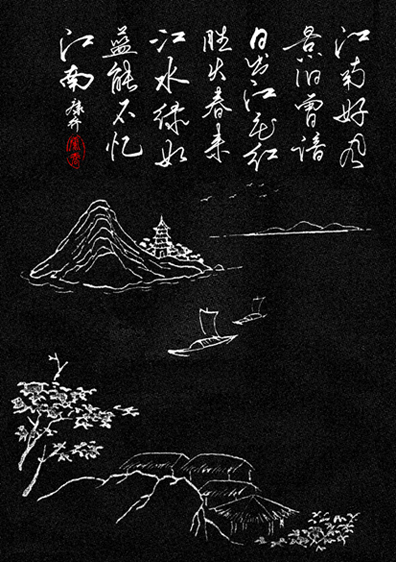 江南好风
景旧曾谙
日出江花红
胜火春来
江水绿如
蓝能不忆
江南